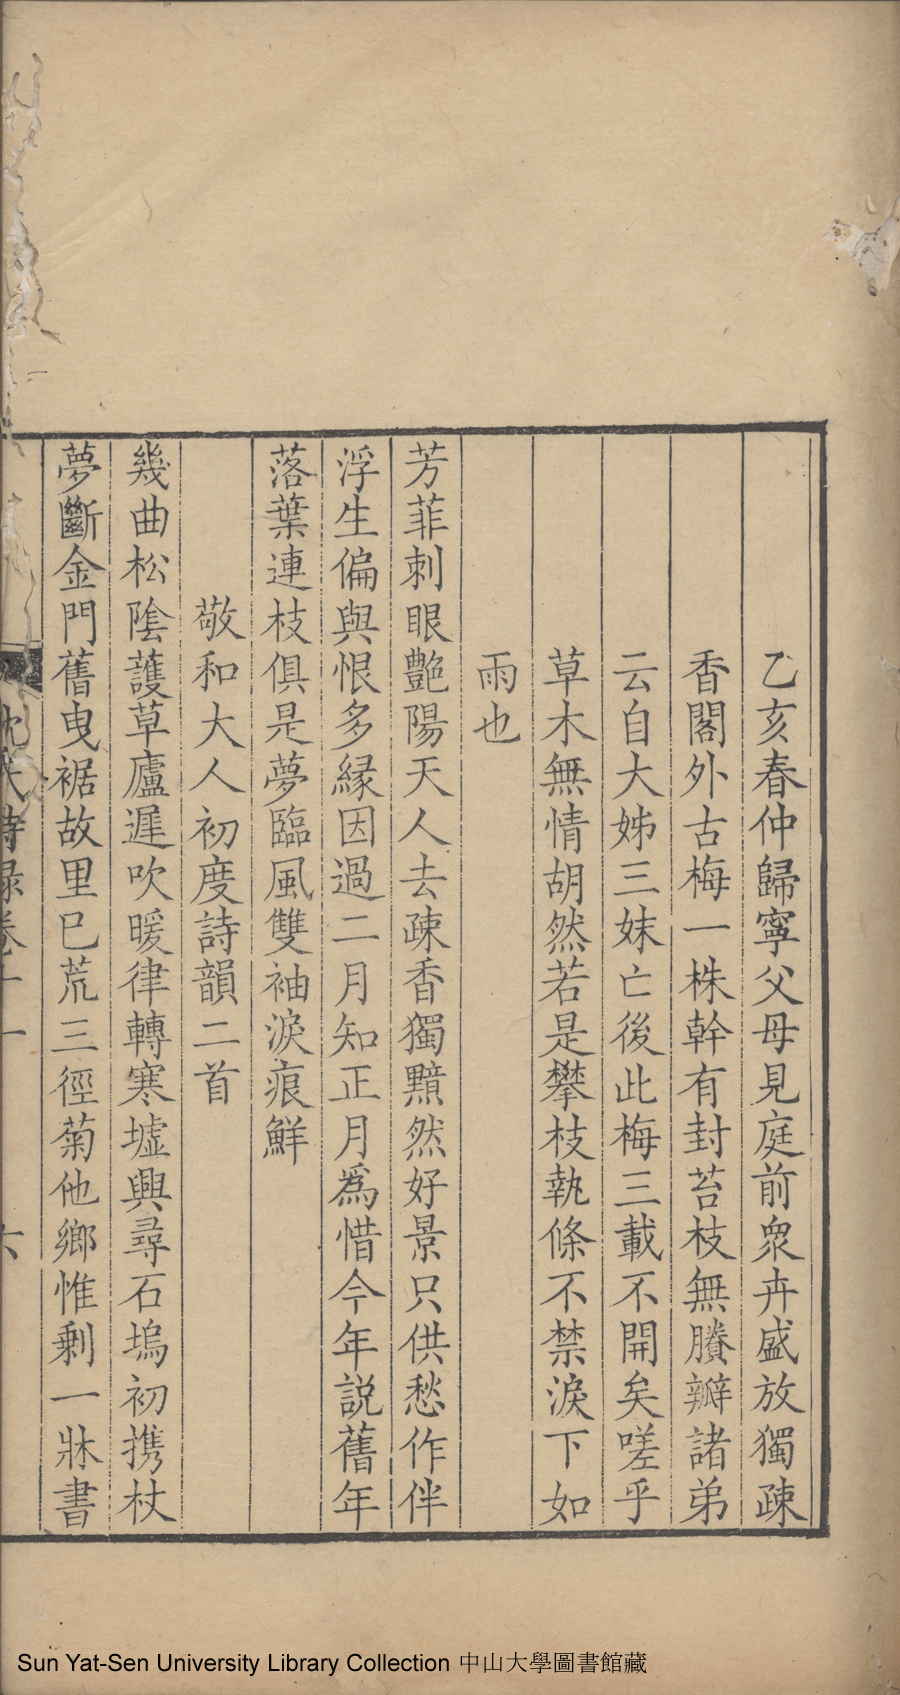 乙亥春仲歸寧父母見庭前衆卉盛放獨疎
香閣外古梅一株幹有封苔枝無賸瓣諸弟
云自大姊三妹亡後此梅三載不開矣嗟乎
草木無情胡然若是攀枝執條不禁淚下如
雨也
芳菲刺眼艷陽天人去疎香獨黯然好景只供愁作伴
浮生偏與恨多緣因過二月知正月爲惜今年説舊年
落葉連枝俱是夢臨風雙袖淚痕鮮
敬和大人初度詩韻二首
幾曲松陰護草廬遲吹暖律轉寒墟興尋石塢初携杖
夢斷金門舊曳裾故里已荒三徑菊他鄉惟剩一牀書
詩録卷十一 六
Sun Yat-Sen University Library Collection 中山大學圖書館藏